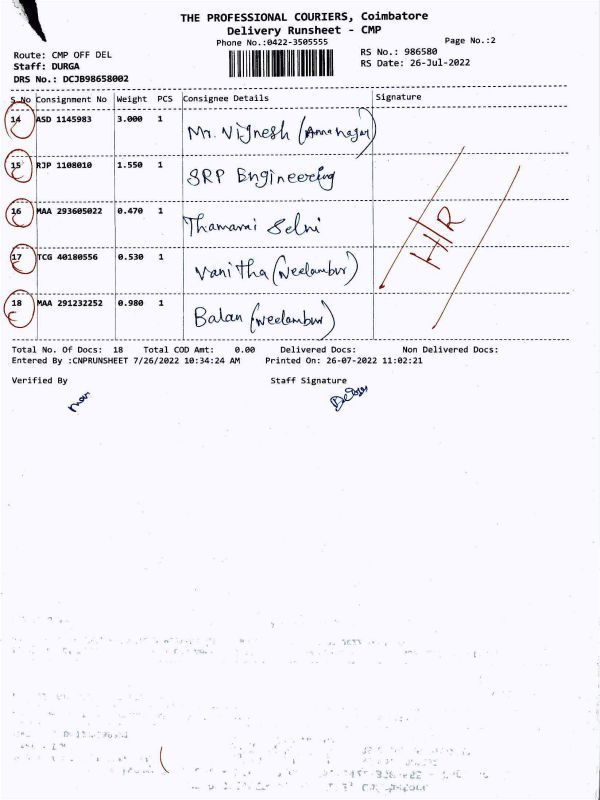 THE PROFESSIONAL COURIERS, Coimbatore
Delivery Runsheet - CMP
Phone No.:0422-3505555
Page No.:2
Route: CMP OFF DEL
RS No.: 986580
Staff: DURGA
RS Date: 26-Jul-2022
DRS No.: DCJB98658002
S.No Consignment No Weight PCS Consignee Details Signature
14 ASD 1145983 3.000 1 Mr. Vignesh (Anna nagar)
15 RJP 1108010 1.550 1 SRP Engineering
16 MAA 293605022 0.470 1 Thamarai Selvi
17 TCG 40180556 0.530 1 Vanitha (Neelambur)
18 MAA 291232252 0.980 1 Balan (Neelambur)
H/R
Total No. Of Docs: 18 Total COD Amt: 0.00 Delivered Docs: Non Delivered Docs:
Entered By :CNPRUNSHEET 7/26/2022 10:34:24 AM Printed On: 26-07-2022 11:02:21
Verified By Staff Signature